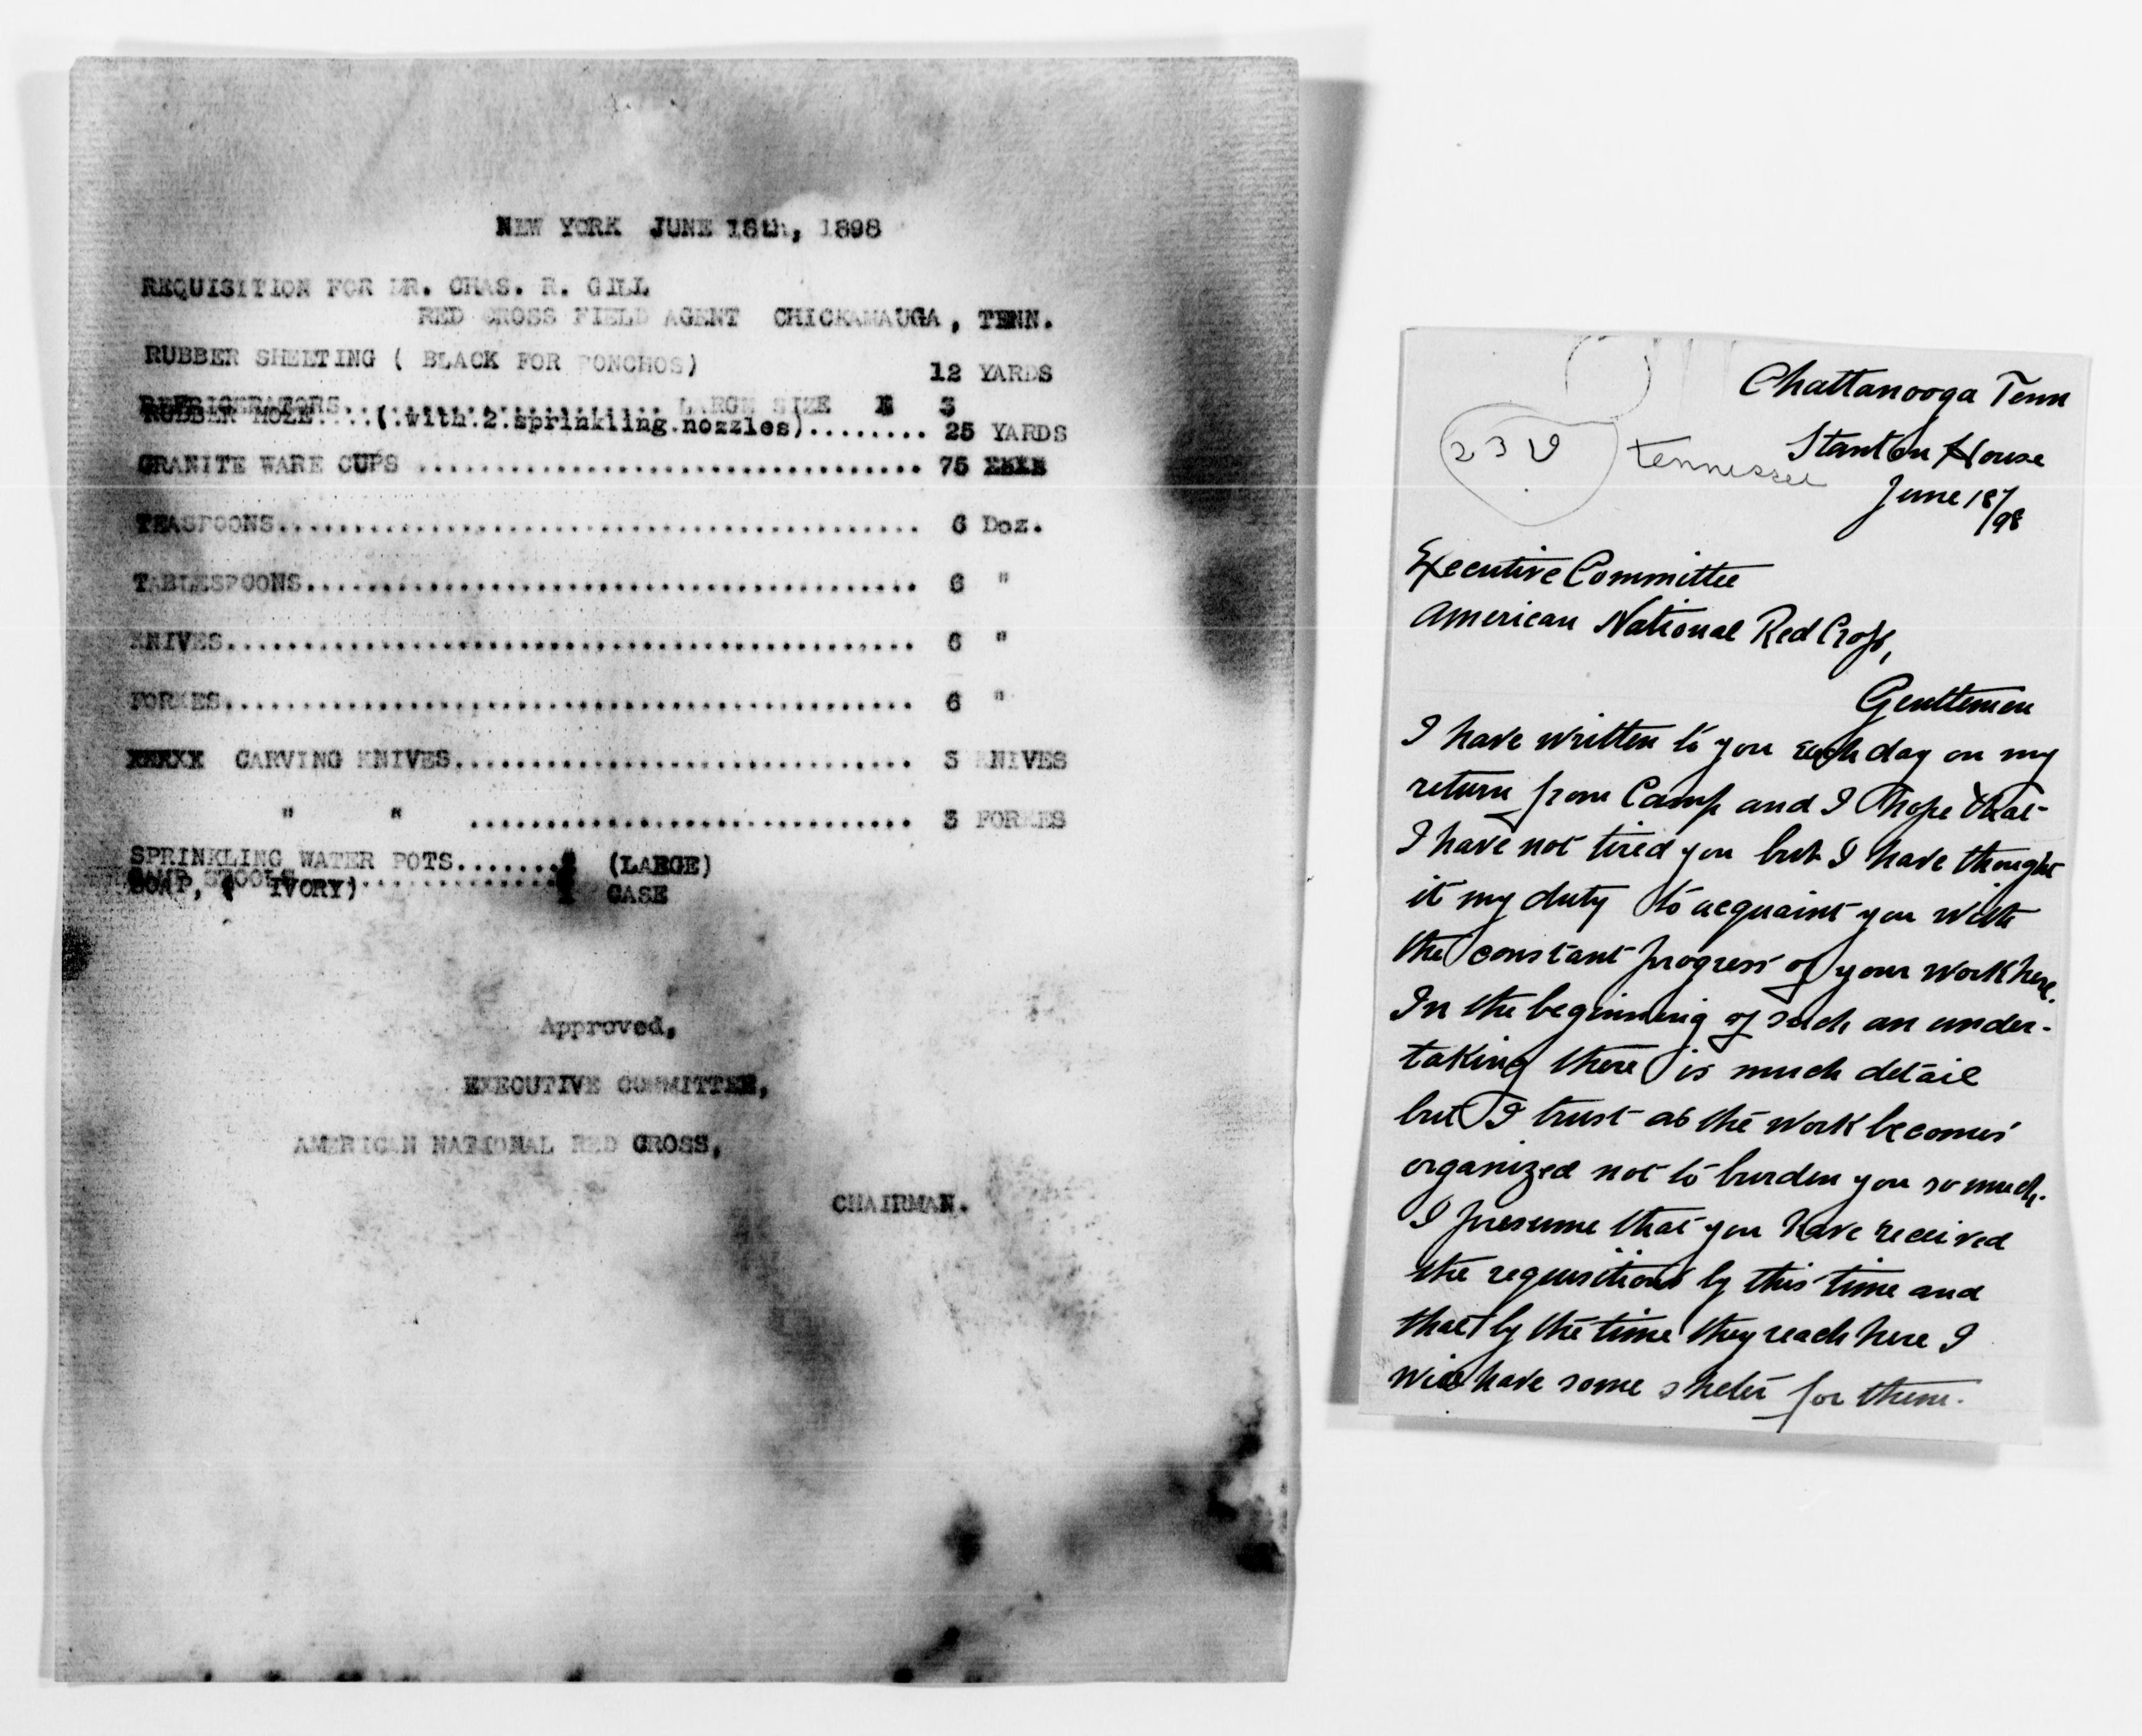 NEW YORK JUNE 18th, 1898
REQUISITION FOR DR. CHAS. R. GILL
RED CROSS FIELD AGENT CHICKAMAUGA, TENN.
RUBBER SHEETING ( BLACK FOR PONCHOS) 12 YARDS
REFRIGERATORS.............................. LARGE SIZE 3
RUBBER HOZE....(.with.2.sprinkling.nozzles)........ 25 YARDS
GRANITE WARE CUPS .................................. 75
TEASPOONS............................................ 6 Doz.
TABLESPOONS.......................................... 6 "
KNIVES............................................... 6 "
FORKES............................................... 6 "
CARVING KNIVES............................... 3 KNIVES
" " .............................. 3 FORKES
SPRINKLING WATER POTS....... (LARGE)
CAMP STOOLS..................
SOAP, ( IVORY) CASE
Approved,
EXECUTIVE COMMITTEE,
AMERICAN NATIONAL RED CROSS,
CHAIRMAN.
Chattanooga Tenn
Stanton House
Tennessee
June 18/98
Executive Committee
American National Red Cross,
Gentlemen
I have written to you each day on my
return from Camp and I hope that
I have not tired you but I have thought
it my duty to acquaint you with
the constant progress of your work here.
In the beginning of such an under-
taking there is much detail
but I trust as the work becomes
organized not to burden you so much.
I presume that you have received
the requisitions by this time and
that by the time they reach here I
will have some shelter for them.